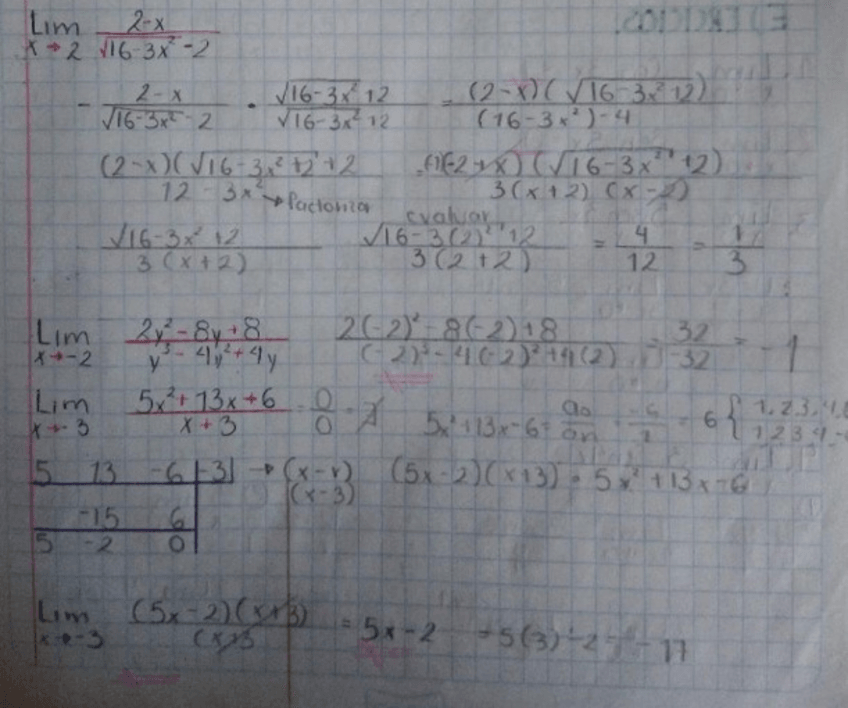 EJERCICIOS.
Lim x→2 2-x / √16-3x² -2
- 2-x / √16-3x² -2 · √16-3x² +2 / √16-3x² +2 = (2-x)(√16-3x² +2) / (16-3x²)-4
(2-x)(√16-3x²+2 +2 / 12-3x² → factoriza (-1)(-2+x)(√16-3x² +2) / 3(x+2)(x-2)
evaluar
√16-3x² +2 / 3(x+2) √16-3(2)² +2 / 3(2+2) = 4/12 = 1/3
Lim x→-2 2y²-8y+8 / y³-4y²+4y 2(-2)²-8(-2)+8 / (-2)³-4(-2)²+4(2) = 32/-32 = -1
Lim x→-3 5x²+13x+6 / x+3 = 0/0 = ∄ 5x²+13x-6 = a₀/aₙ = -6/1 = 6 { 1,2,3,4,
1,2,3,4,
5 13 -6 |-3| → (x-r) (5x-2)(x+3) = 5x²+13x-6
(x-3)
-15 6
5 -2 0
Lim x→-3 (5x-2)(x+3) / (x+3 = 5x-2 = 5(3)-2 = -17